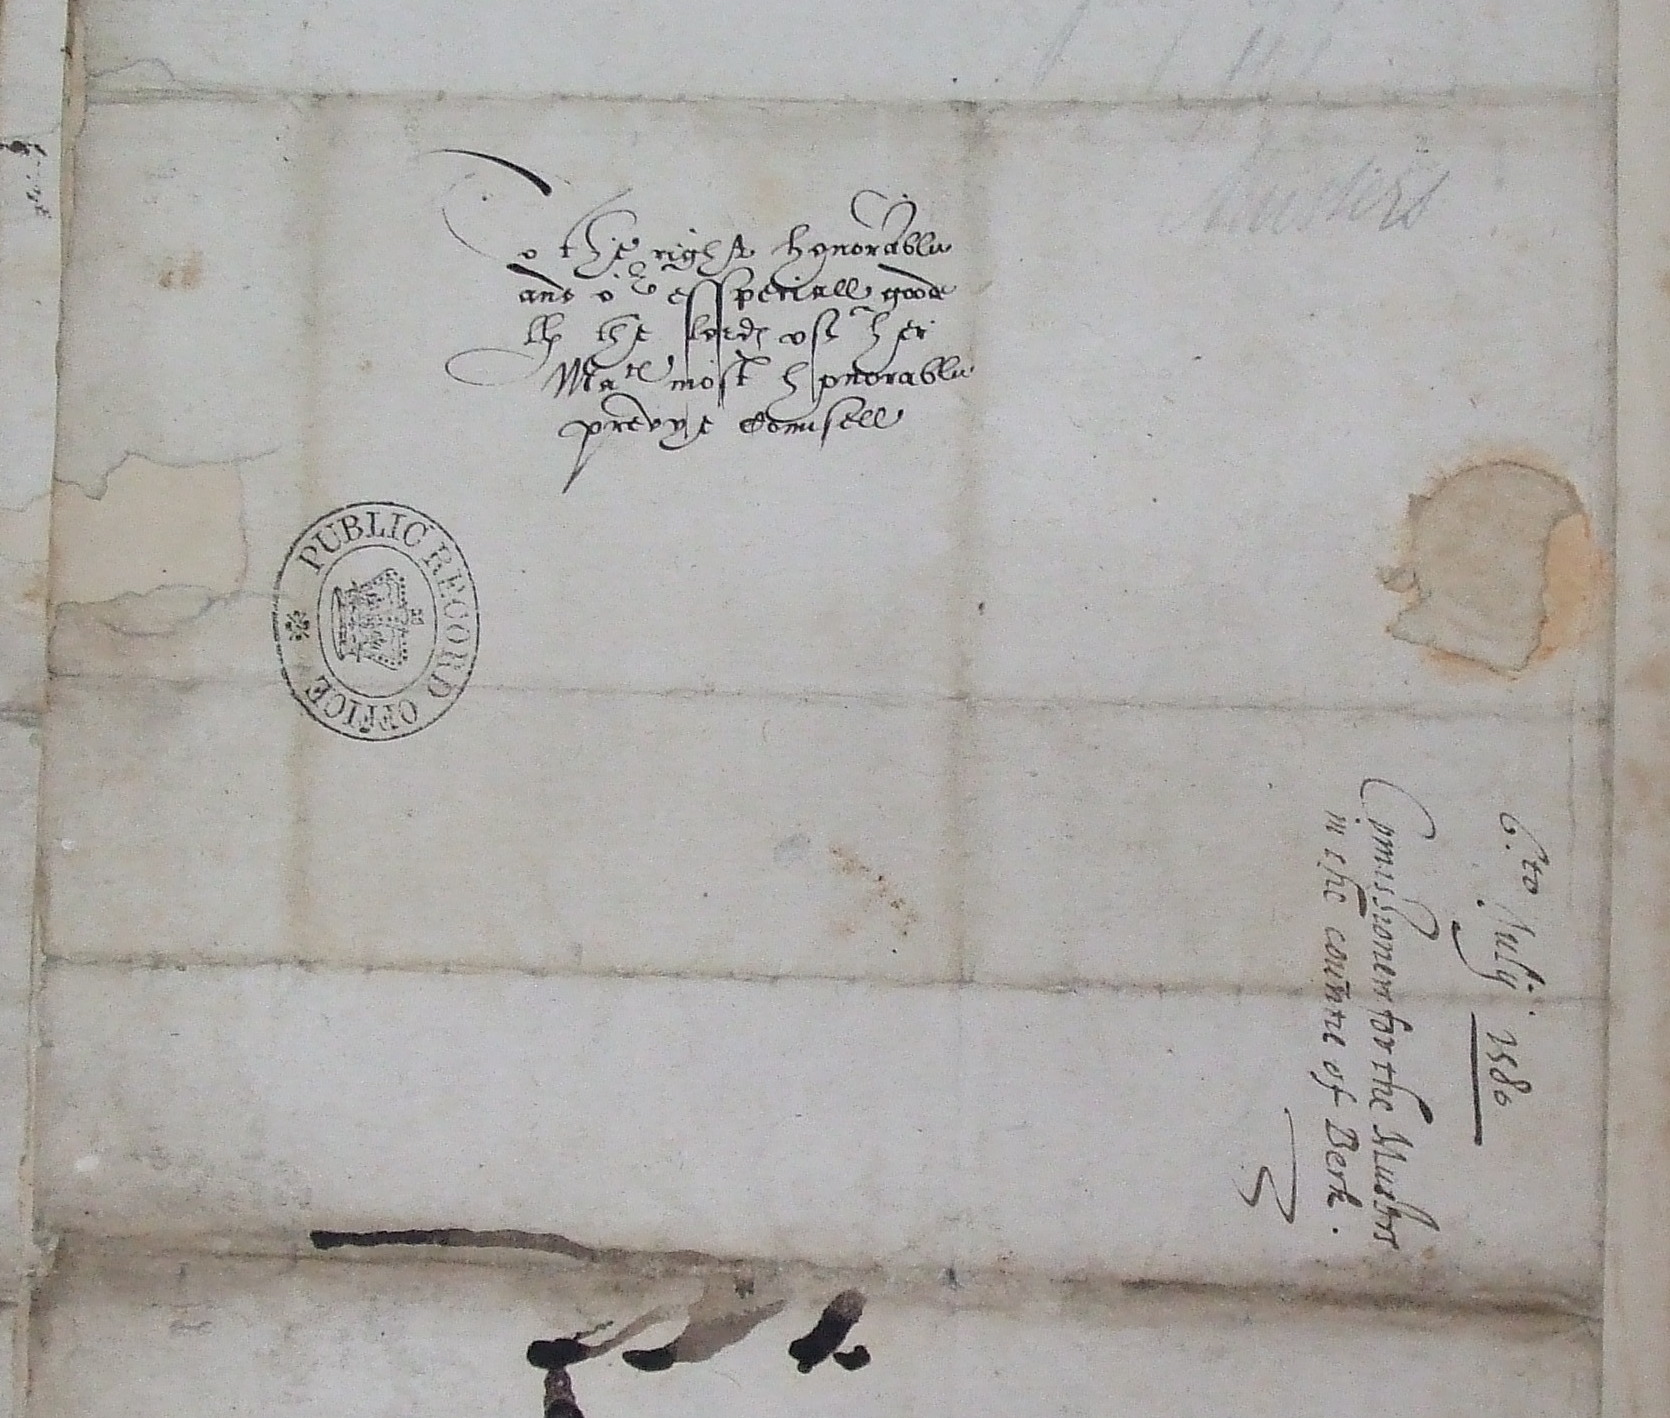 To the right honorable
and or esspeciall goode
ll the lords of her
Matie most honorable
prevye Counsell
Musters
PUBLIC RECORD OFFICE
6.to July. 1580
Comissioners for the Musters
in the countie of Berk.